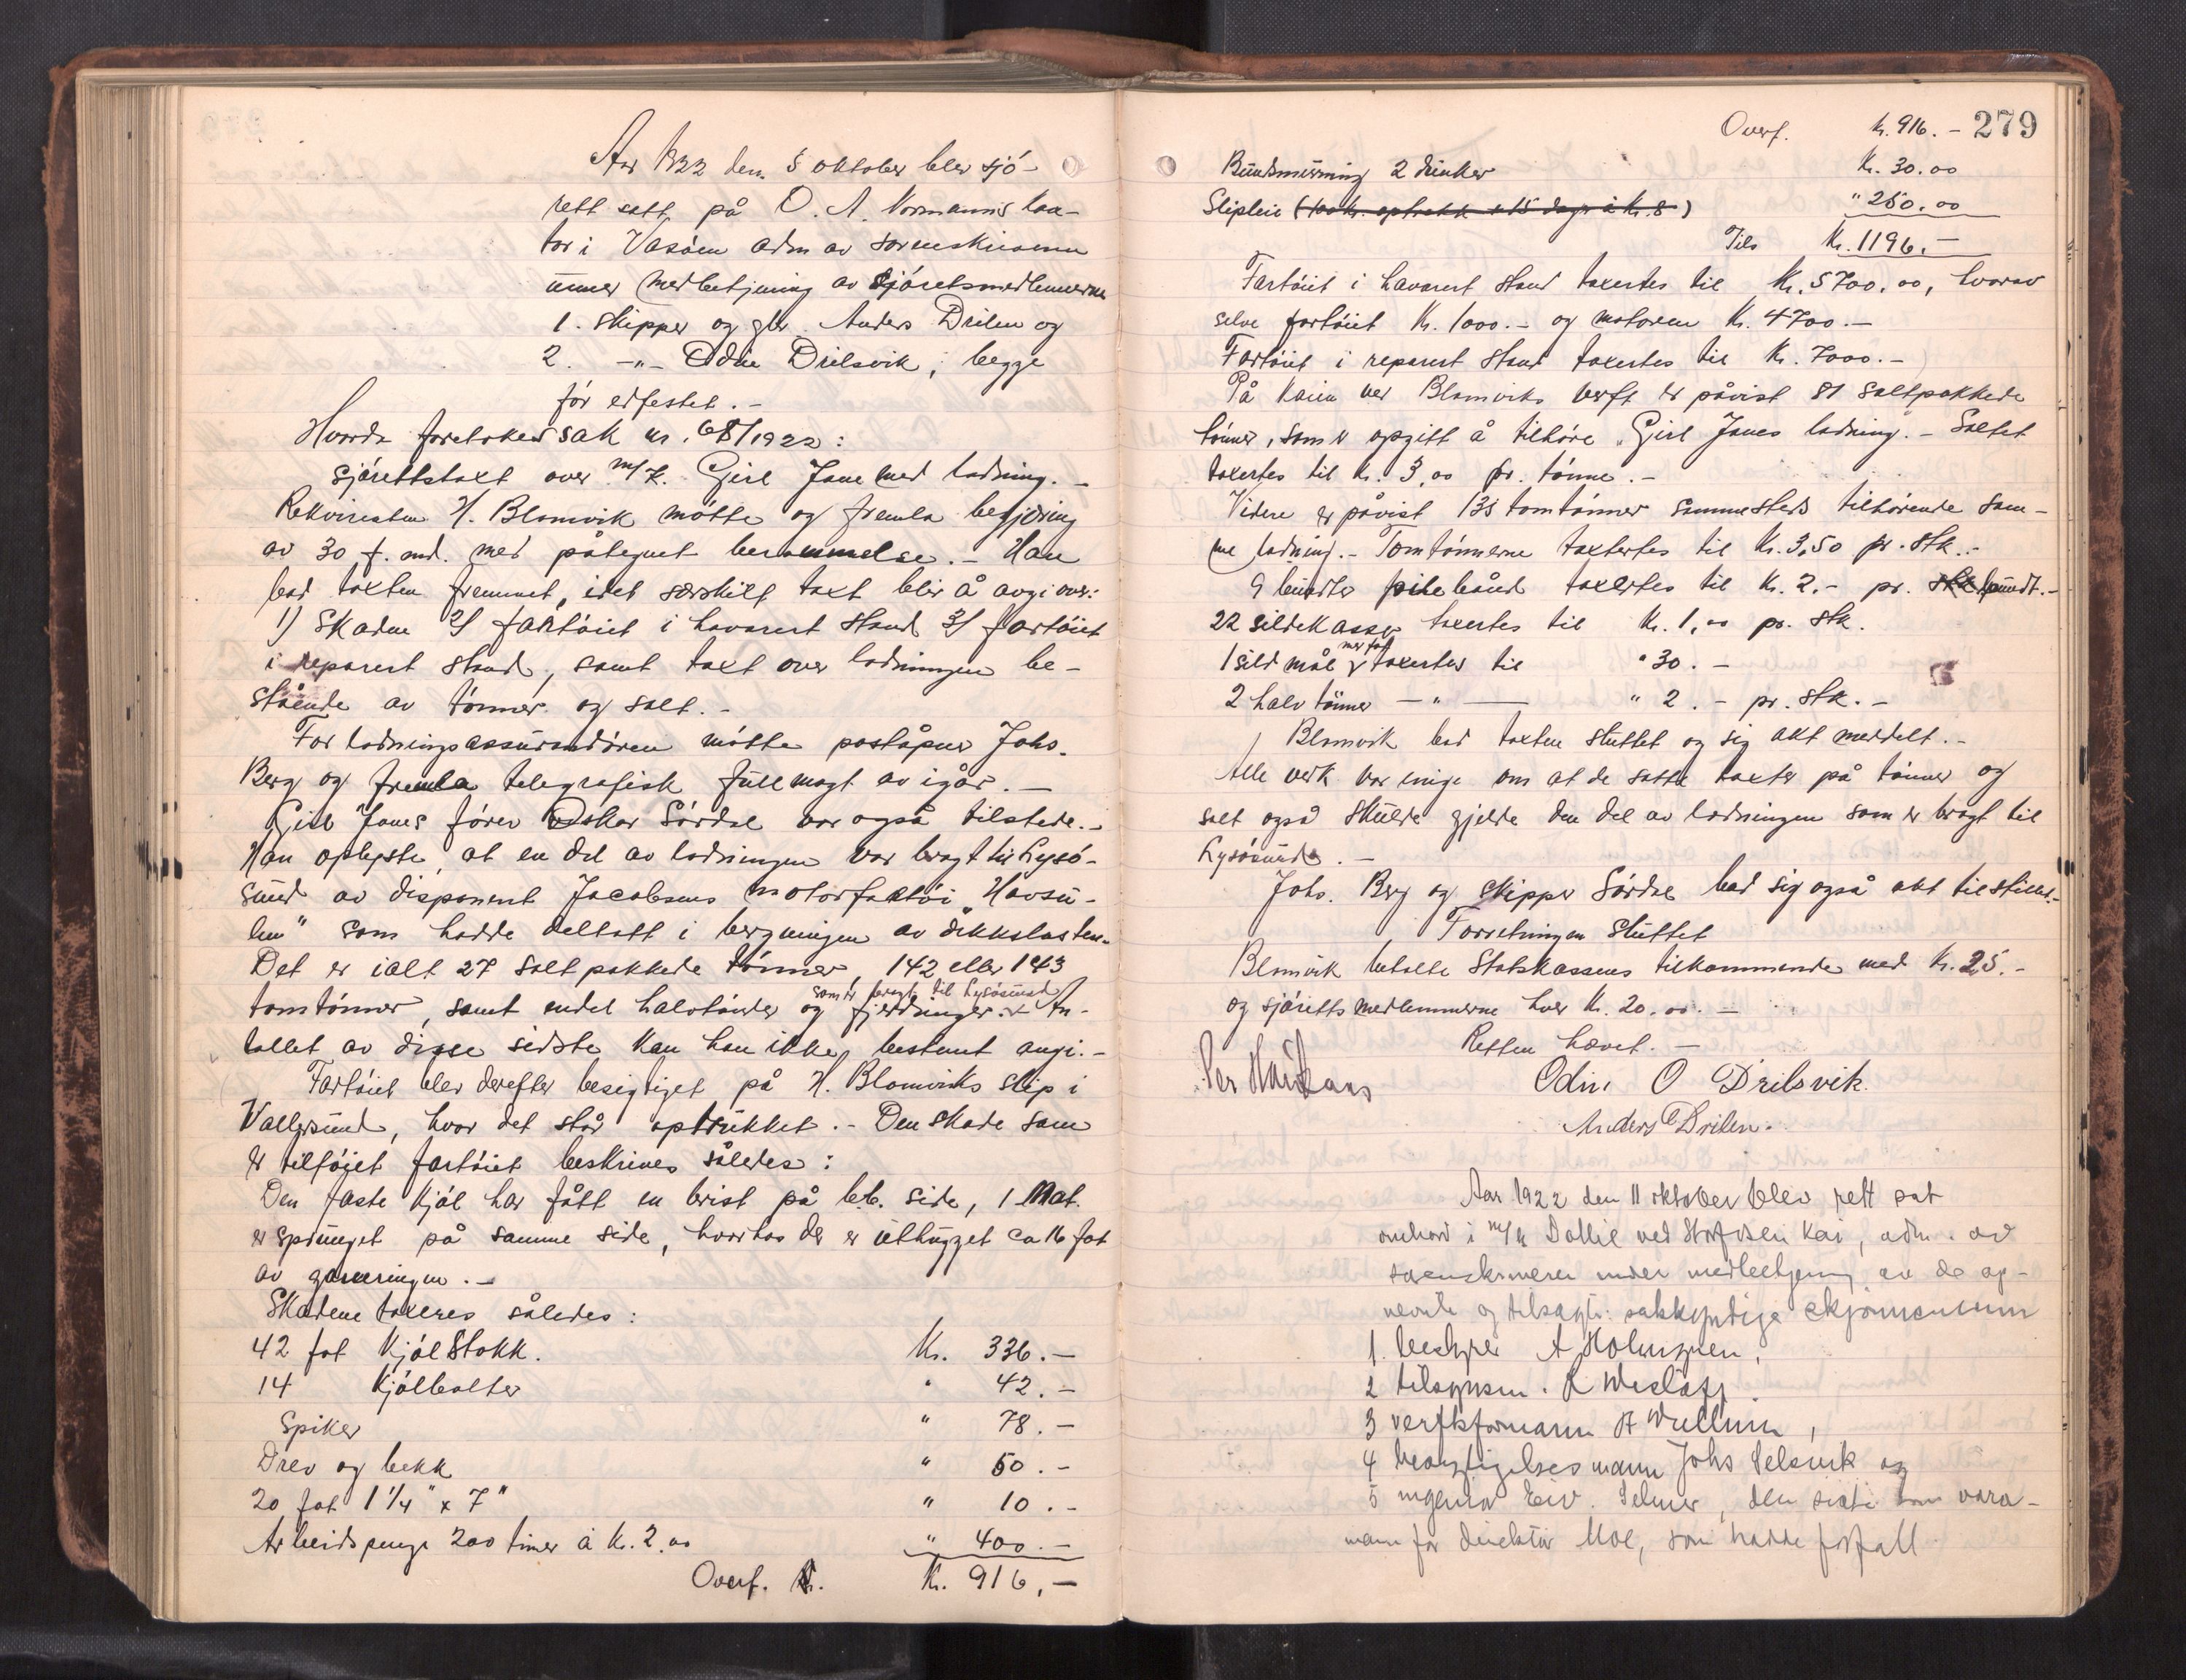 Aar 1922 den 5 oktober blev sjö-
rett satt på O. A. Normanns kon-
tor i Vasöen adm av sorenskriveren
under medbetjening av sjöretsmedlemmerne
1. Skipper og gbr. Anders Drilen og
2. -"- Odin Drilsvik, begge
för edfestet. -
Hvorda foretokes sak nr. 68/1922:
sjörettstaxt over m/k. Girl Jane med ladning. -
Rekvirenten H. Blomvik mötte og fremla begjæring
av 30 f. md. med påtegnet berammelse. - Han
bad taxten fremmet, idet særskilt taxt blir å avgi over:
1) Skaden 2) fartöiet i havarert stand 3) fartöiet
i reparert stand, samt taxt over ladningen be-
stående av tönner og salt. -
For ladningsassurandören mötte poståpner Johs.
Berg og fremla telegrafisk fullmagt av igår. -
Girl Janes förer Oskar Sördal var også tilstede. -
Han oplyste, at en del av ladningen var bragt til Lysö-
sund av disponent Jacobsens motorfartöi "Havsu-
len" som hadde deltatt i bergningen av dekkslasten.
Det er ialt 27 saltpakkede tönner, 142 eller 143
som er bragt til Lysösund
tomtönner, samt endel halvtönder og fjerdinger. An-
tallet av disse sidste kan han ikke bestemt angi. -
Fartöiet blev derefter besigtiget på H. Blomviks slip i
Vallersund, hvor det står optrukket. - Den skade som
er tilföiet fartöiet beskrives således:
Den faste kjöl har fått en brist på b.b. side, 1 Nat.
er sprunget på samme side, hvorhos der er uthugget ca 16 fot
av garneringen. -
Skadene taxeres således:
42 fot Kjölstokk. Kr. 336. -
14 Kjölbolter " 42. -
Spiker " 78. -
Drev og bekk " 50. -
20 fot 1 1/4" x 7" " 10. -
Arbeidspenge 200 timer à Kr. 2.00 " 400. -
Overf. Kr. 916, -
279
Overf. Kr. 916. -
Bundsmörning 2 drinker Kr. 30.00
Slipleie (100 kr. optrekk + 15 dage à Kr. 8) " 250.00
Tils Kr. 1196. -
Fartöiet i havarert stand taxertes til Kr. 5700.00, hvorav
selve fartöiet Kr. 1000. - og motoren Kr. 4700. -
Fartöiet i reparert stand taxertes til Kr. 7000. -
På Kaien ved Blomviks verft er påvist 81 saltpakkede
tönner, som er opgitt å tilhöre "Girl Janes ladning. - Saltet
taxertes til Kr. 3,00 pr. tönne. -
Videre er påvist 135 tomtönner sammesteds tilhörende sam-
me ladning. - Tomtönnerne taxtertes til Kr. 3,50 pr. stk. -
9 bundter pilebånd taxertes til Kr. 2. - pr. stk bundt. -
22 sildekasser taxertes til Kr. 1,00 pr. stk.
med fot
1 sildmål taxertes til " 30. -
2 halvtönner -"- " 2. - pr. stk. -
Blomvik bad taxten sluttet og sig akt meddelt. -
Alle vedk var enige om at de satte taxter på tönner og
salt også skulde gjelde den del av ladningen som er bragt til
Lysösund. -
Johs. Berg og skipper Sördal bad sig også akt tilstillet. -
Forretningen sluttet
Blomvik betalte Statskassens tilkommende med Kr. 25. -
og sjörettsmedlemmerne hver Kr. 20.00. -
Retten hævet. -
Odin O Drilsvik.
Anders Drilen.
Aar 1922 den 11 oktober blev rett sat
ombord i m/k Dollie ved kai, adm. av
sorenskriveren under medbetjening av de op-
nevnte og tilsagte sakkyndige skjönsmenn
1. bestyrer A Holmgren,
2 tilsynsm. R
3 verftsformann A Wullum,
4 besigtigelsesmann Johs Selsvik og
5 ingeniör Eiv. Selmer, den siste som vara-
mann for direktör Moe, som hadde forfall